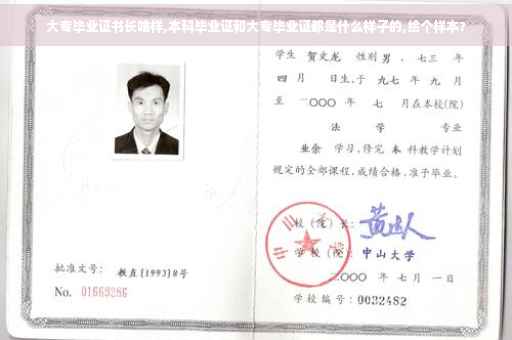 大专毕业证书长啥样,本科毕业证和大专毕业证都是什么样子的,给个样本?
学生 贺文龙 性别 男 、七三 年
四 月 日生,于 九七 年 九 月
至 二〇〇〇 年 七 月在本校(院)
法 学 专业
业余 学习,修完 本 科教学计划
规定的全部课程,成绩合格,准予毕业。
校(院)长:
学校(院): 中山大学
二〇〇〇 年 七 月 一 日
学校编号: 0032482
批准文号: 教直[1993]8号
No. 01669286